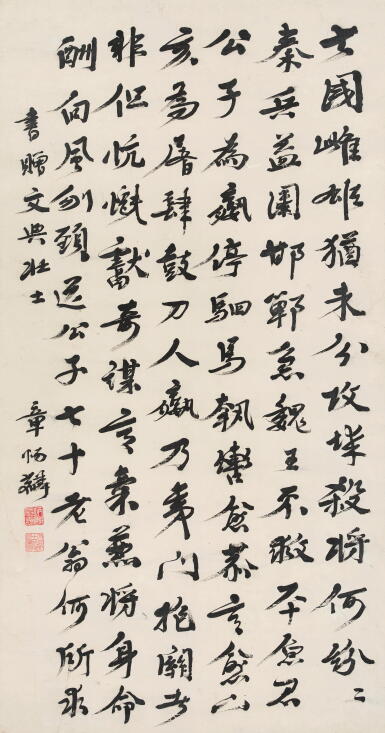 七國雌雄猶未分攻城殺將何紛〻
秦兵益圍邯鄲急魏王不救平原君
公子為嬴停駟馬執轡愈恭意愈下
亥為屠肆鼓刀人嬴乃夷門抱關者
非但慷慨獻奇謀意氣兼將身命
酬向風刎頸送公子七十老翁何所求
書贈文典壯士
章炳麟